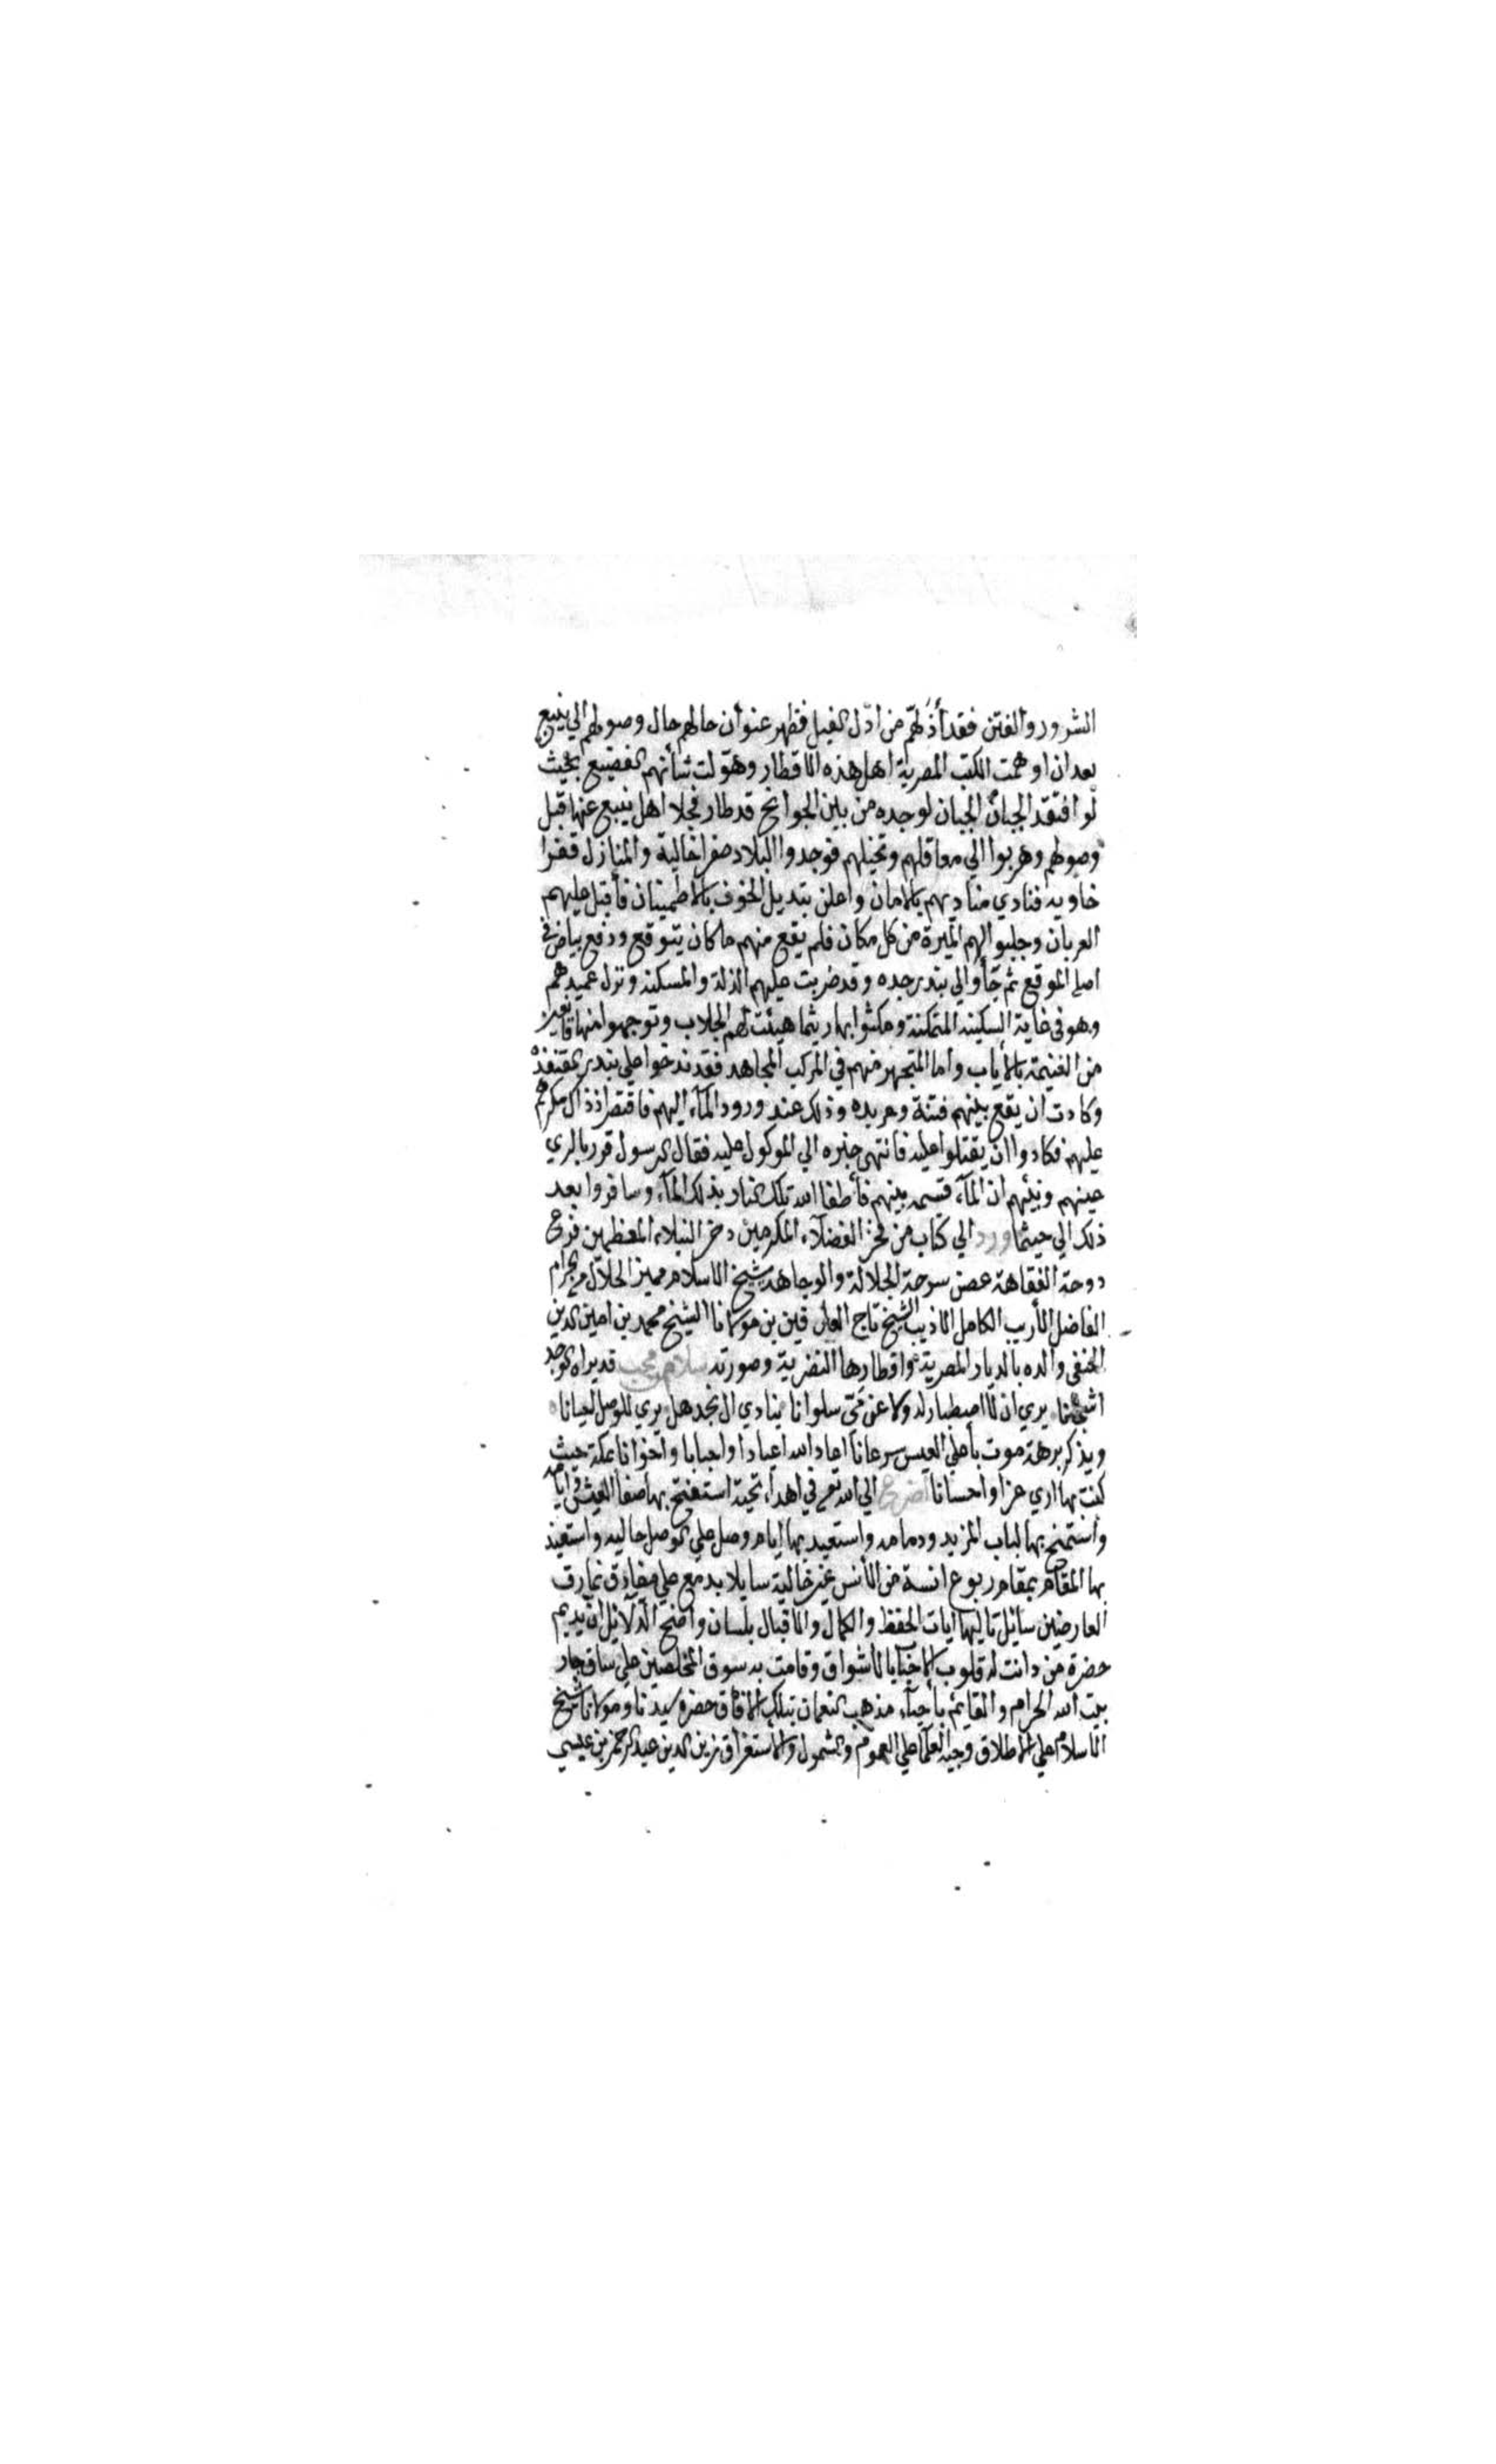 الشرور والفتن فقد أذلهم من اذل الفيل فظهر عنوان حالهم حال وصولهم الي ينبع
بعد ان اوهمت الكتب المصرية اهل هذه الاقطار وهولت شأنهم الفضيع بحيث
لو افتقد الجبان الجنان لوجده من بين الجوانح قد طار فجلا اهل ينبع عنها قبل
وصولهم وهربوا الي معاقلهم ونخيلهم فوجدوا البلاد صفرا خالية والمنازل قفرا
خاوية فنادي مناديهم بالامان واعلن بتبديل الخوف بالاطمينان فأقبل عليهم
العربان وجلبوا اليهم الميرة من كل مكان فلم يقع منهم ما كان يتوقع ودفع بياض في
اصل الموقع ثم جأوا الي بندر جده وقد ضربت عليهم الذلة والمسكنة ونزل عميدهم
وهو في غاية السكينة المتمكنة ومكثوا بها ريثما هيئت لهم الجلاب وتوجهوا منها قانعين
من الغنيمة بالاياب واما المتجهز منهم في المركب المجاهد فقد ندخوا علي بندر القنفذة
وكادت ان يقع بينهم فتنة وعربده وذلك عند ورود المآء اليهم فاقتصر اذ ذاك
عليهم فكادوا ان يقتتلوا عليه فانتهي خبره الي الموكول عليه فقال الرسول قد ربا لري
حينهم ونبئهم ان المآء قسمة بينهم فأطفا الله تلك النار بذلك المآء وسافروا بعد
ذلك الي حيثما ورد الي كتاب من فخر الفضلآء المكرمين ذخر النبلاء المعظمين فرع
دوحة الفقاهة غصن سرحة الجلالة والوجاهة شيخ الاسلام مميز الحلال من الحرام
الفاضل الأريب الكامل الاديب الشيخ تاج العارفين بن مولانا الشيخ محمد بن امين الدين
الحنفي والده بالديار المصرية واقطارها النضرية وصورته سلام محب قد براه الوجد
اشجانا يري ان لا اصطبار له ولا عن مي سلوانا ينادي ال نجد هل يري للوصل لعيانا
ويذكر برهة موت بأعلي العيس سرعانا اعاد الله اعيادا واحبابا واخوانا بمكة حيث
كنت بها اري عزا واحسانا اضرع الي الله تع في اهداء تحية استفتح بها صفا العيش وايامه
وأستمنح بها لباب المزيد ودمامه واستعيد بها ايام وصل علي الوصل حاليه واستعيذ
بها المقام بمقام ربوع انسة من الأنس غير خالية سايلا بدمع علي مفارق نمارق
العارضين سائل تاليها ايات الحفظ والكمال والاقبال بلسان واضح الدلآئل ان يديم
حضرة من دانت له قلوب الاحبآ بالاشواق وقامت به سوق المخلصين علي ساق جار
بيت الله الحرام والقايم بأحيآء مذهب النعمان بتلك الافاق حضرة سيدنا ومولانا شيخ
الاسلام علي الاطلاق وجيه العلمآ علي العموم والشمول والاستغراق زين الدين عبد الرحمن بن عيسي